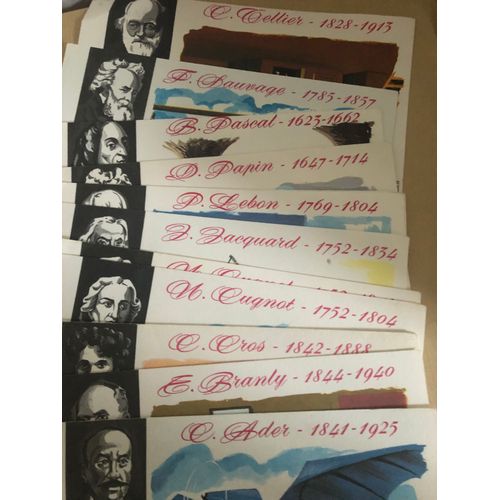 C. Tellier - 1828-1913
F. Sauvage - 1785-1857
B. Pascal - 1623-1662
D. Papin - 1647-1714
P. Lebon - 1769-1804
J. Jacquard - 1752-1834
N. Cugnot
N. Cugnot - 1752-1804
C. Cros - 1842-1888
E. Branly - 1844-1940
C. Ader - 1841-1925